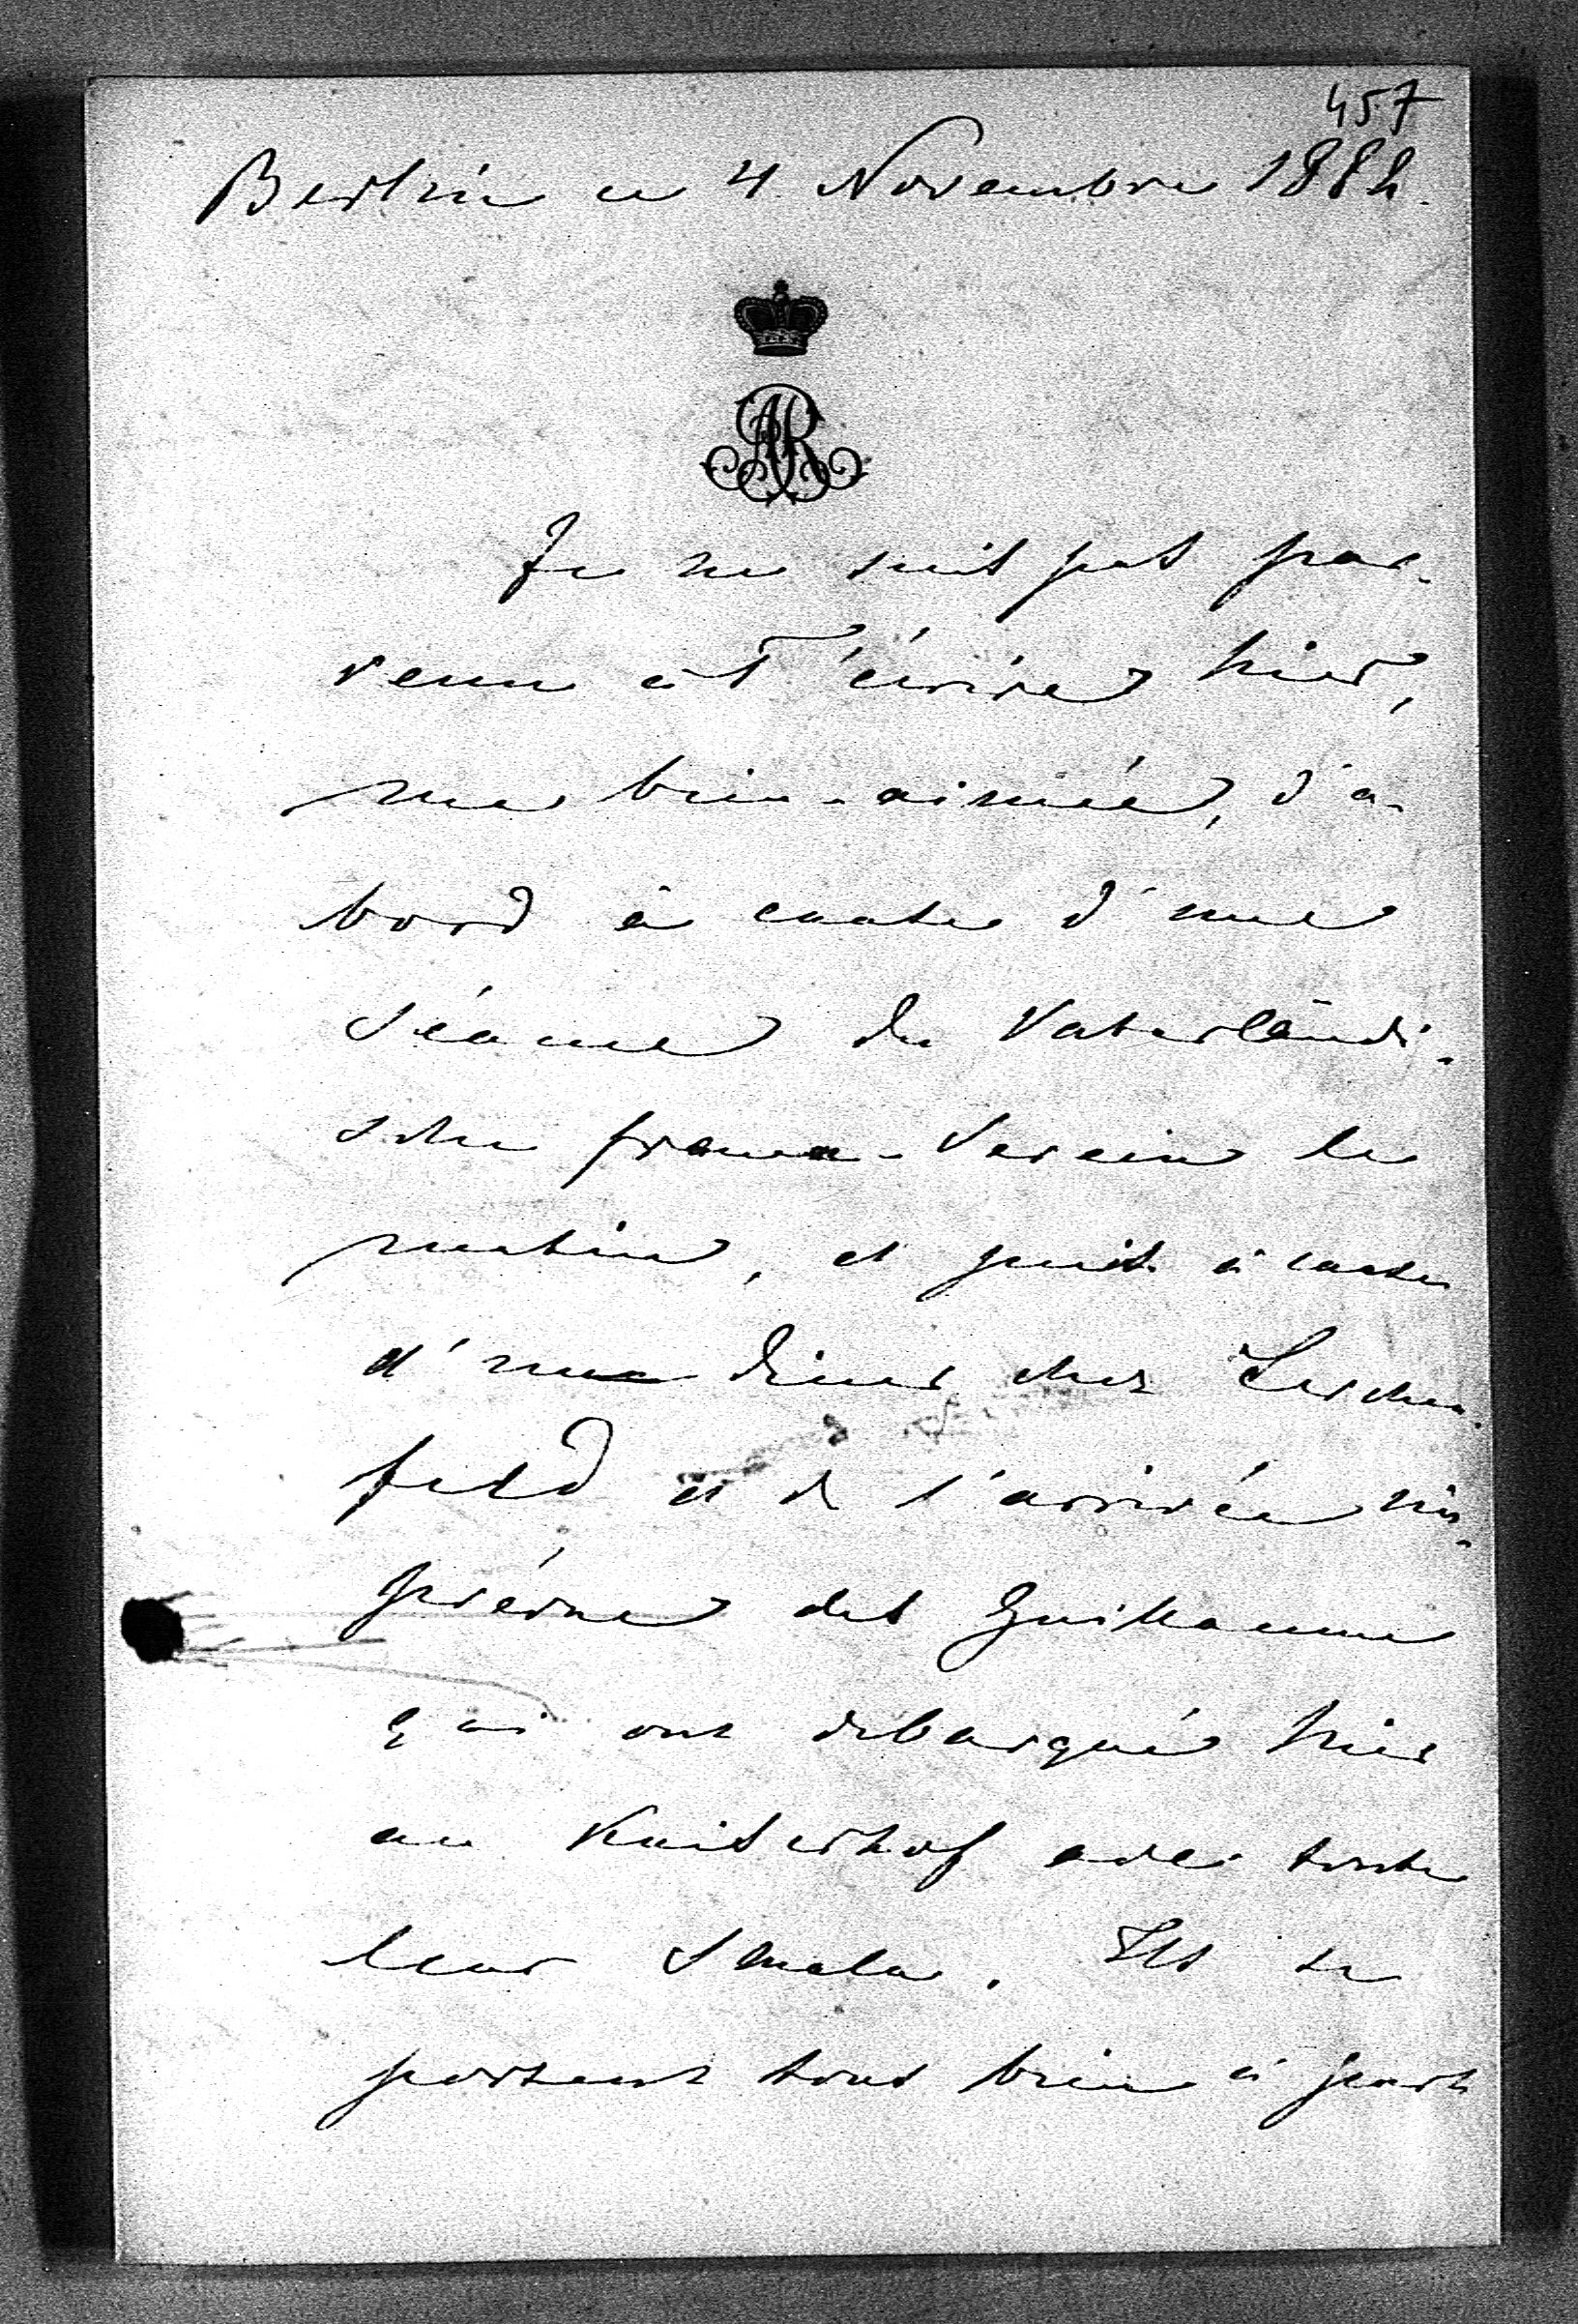 457
Berlin ce 4 Novembre 1884.
AR
Je ne suis pas par-
venu à T'écrire hier,
ma bien-aimée, d'a-
bord à cause d'une
séance du Vaterländi-
schen frauen-Verein le
matin, et puis à cause
d'un diner chez Lerchen-
feld et de l'arrivée
des Guillaume
qui ont debarqué hier
au Kaiserhof avec toute
leur smala. Ils se
portent tous bien à part